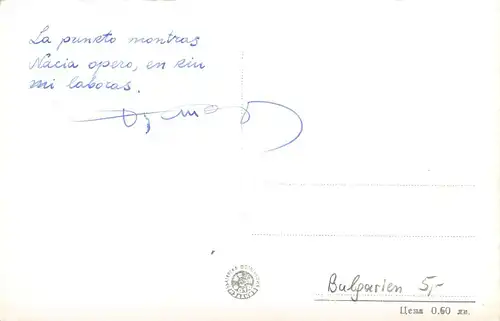 La punkto montras
Nacia opero, en kiu
mi laboras.
Bulgarien 5,-
Цена 0.60 лв.